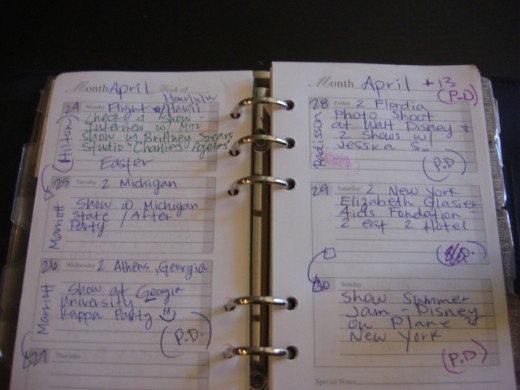 Month April Week of
Honolulu
24 Monday Flight w/ Hawii
Check & Show -
Interview w/ MTV
Show w/ Brittney Spears
Studio "Charlies
(Hilton)
Easter
25 Tuesday 2 Michigan
Marriott
Show @ Michigan
State / After
Party
26 Wednesday 2 Athens, Georgia
Marriott
Show at Georgia
University
Kappa Party
(P.D.)
27 Thursday
Month April +13
(P.D)
28 Friday 2 Flordia
Photo Shoot
at Walt Disney +
2 Shows w/
Jessica S.
Radisson
(P.D)
29 Saturday 2 New York
Elizabeth Glasier
Aids Fondation -
2 east 2 Hotel
30 Sunday
Show Summer
Jam - Disney
on Plane "2"
New York
(P.D)
Special Notes